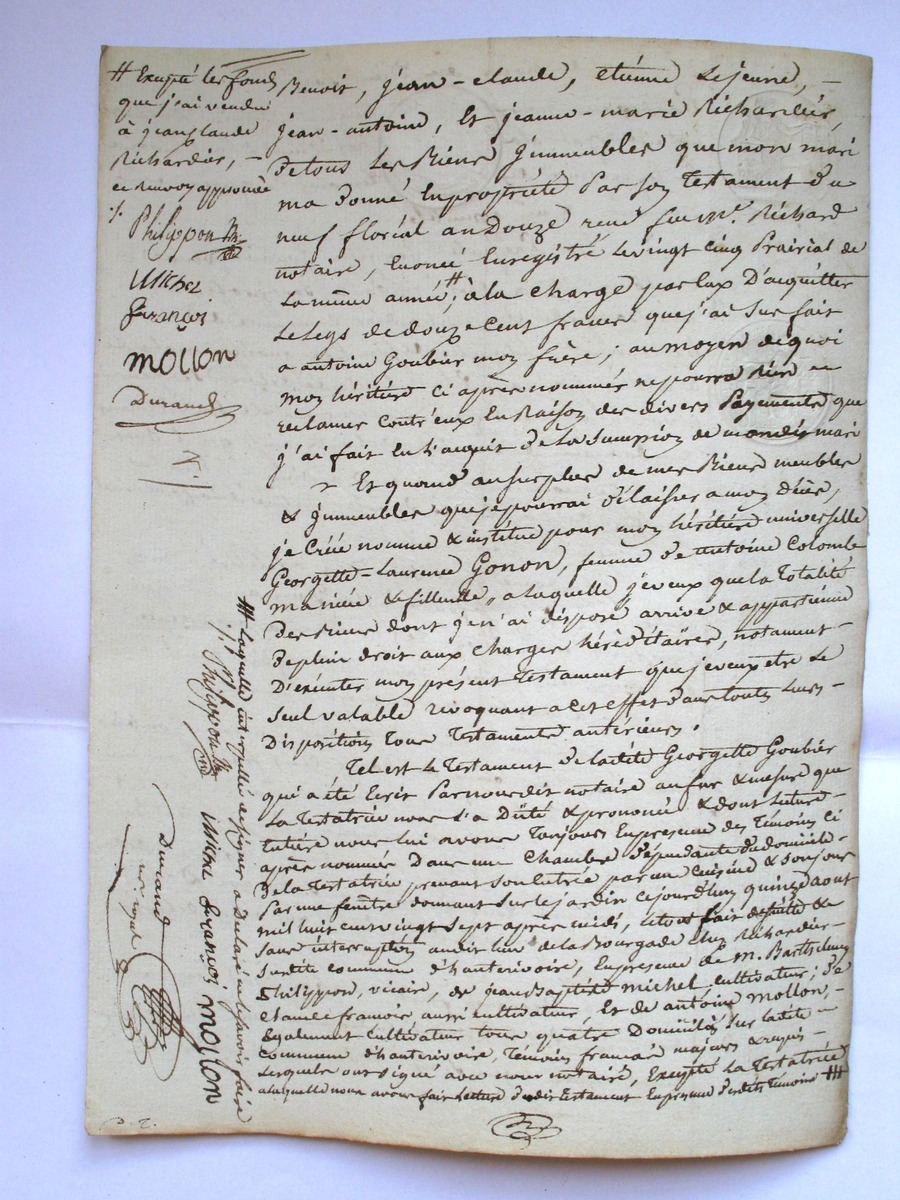 # Excepté les fonds
que j'ai vendu
à jean claude
Richardier, -
ce renvoy approuvé
./.
Philippon
Michel
françois
mollon
Durand
Benoit, jean-claude, etienne Lejeune, -
jean-antoine, Et jeanne-marie Richardier,
de tous Les Biens jmmeubles que mon mari
ma donné En propriété Par son Testament du
neuf floréal an Douze reçu feu Mr. Richard
notaire, Enoncé Enregistré Le vingt cinq Prairial de
La même année #; à la charge par Eux D'acquitter
Le Legs de douze Cent francs que j'ai Sur fait
a antoine Goubier mon frère; au moyen de quoi
mon héritière Ci après nommée ne pourra Rien
reclamer Contr'eux En Raison des divers Payements que
j'ai fait En L'acquit de La Succession de mondit mari
Et quand au surplus de mes Biens meubles
& jmmeubles que je pourrai délaisser a mon Décès,
je Créée nomme & institue pour mon héritière universelle
Georgette-Laurence Gonon, femme de antoine Colombe
ma nièce & filleulle, a laquelle je veux que la Totalité
Des Biens dont je n'ai disposé arrive & appartienne
De plein droit aux Charges héréditaires, notament
D'exécuter mon présent Testament que je veux être Le
Seul valable révoquant a cet effet dans toutes Leurs -
Dispositions Tous Testaments antérieurs.
Tel est Le Testament de Ladite Georgette Goubier
qui a été Ecrit Par nous dit notaire au fur & mesure que
La Testatrice nous L'a Dicté & prononcé & dont Lecture -
Entière nous Lui avons Toujours En présence des Témoins Ci
après nommés Dans une Chambre dépendante du domicile -
De la Testatrice prenant Son Entrée par une Cuisine & Son jour
Par une fenêtre donnant sur Le jardin Cejourd'hui quinze aout
mil huit cent vingt Sept après midi, Le tout fait de suite &
Sans interruption audit Lieu de la Bourgade Chez Richardier
Susdite commune d'hauterivoire, En presence de m. Barthelemy
Philippon, vicaire, de jean Baptiste michel, cultivateur; de
Claude françois aussi cultivateur, Et de antoine mollon, -
Egalement Cultivateur tous quatre Domiciliés Sur ladite
Commune d'hauterivoire, Témoins français majeurs & requis -
Lesquels ont signé avec nous notaire, Excepté La Testatrice
a laquelle nous avons fait Lecture dudit Testament En présence desdits Témoins ###
### Laquelle interpellée de signer a Déclaré ne Savoir faire
./. Philippon Michel françois mollon
Durand
n.re royal